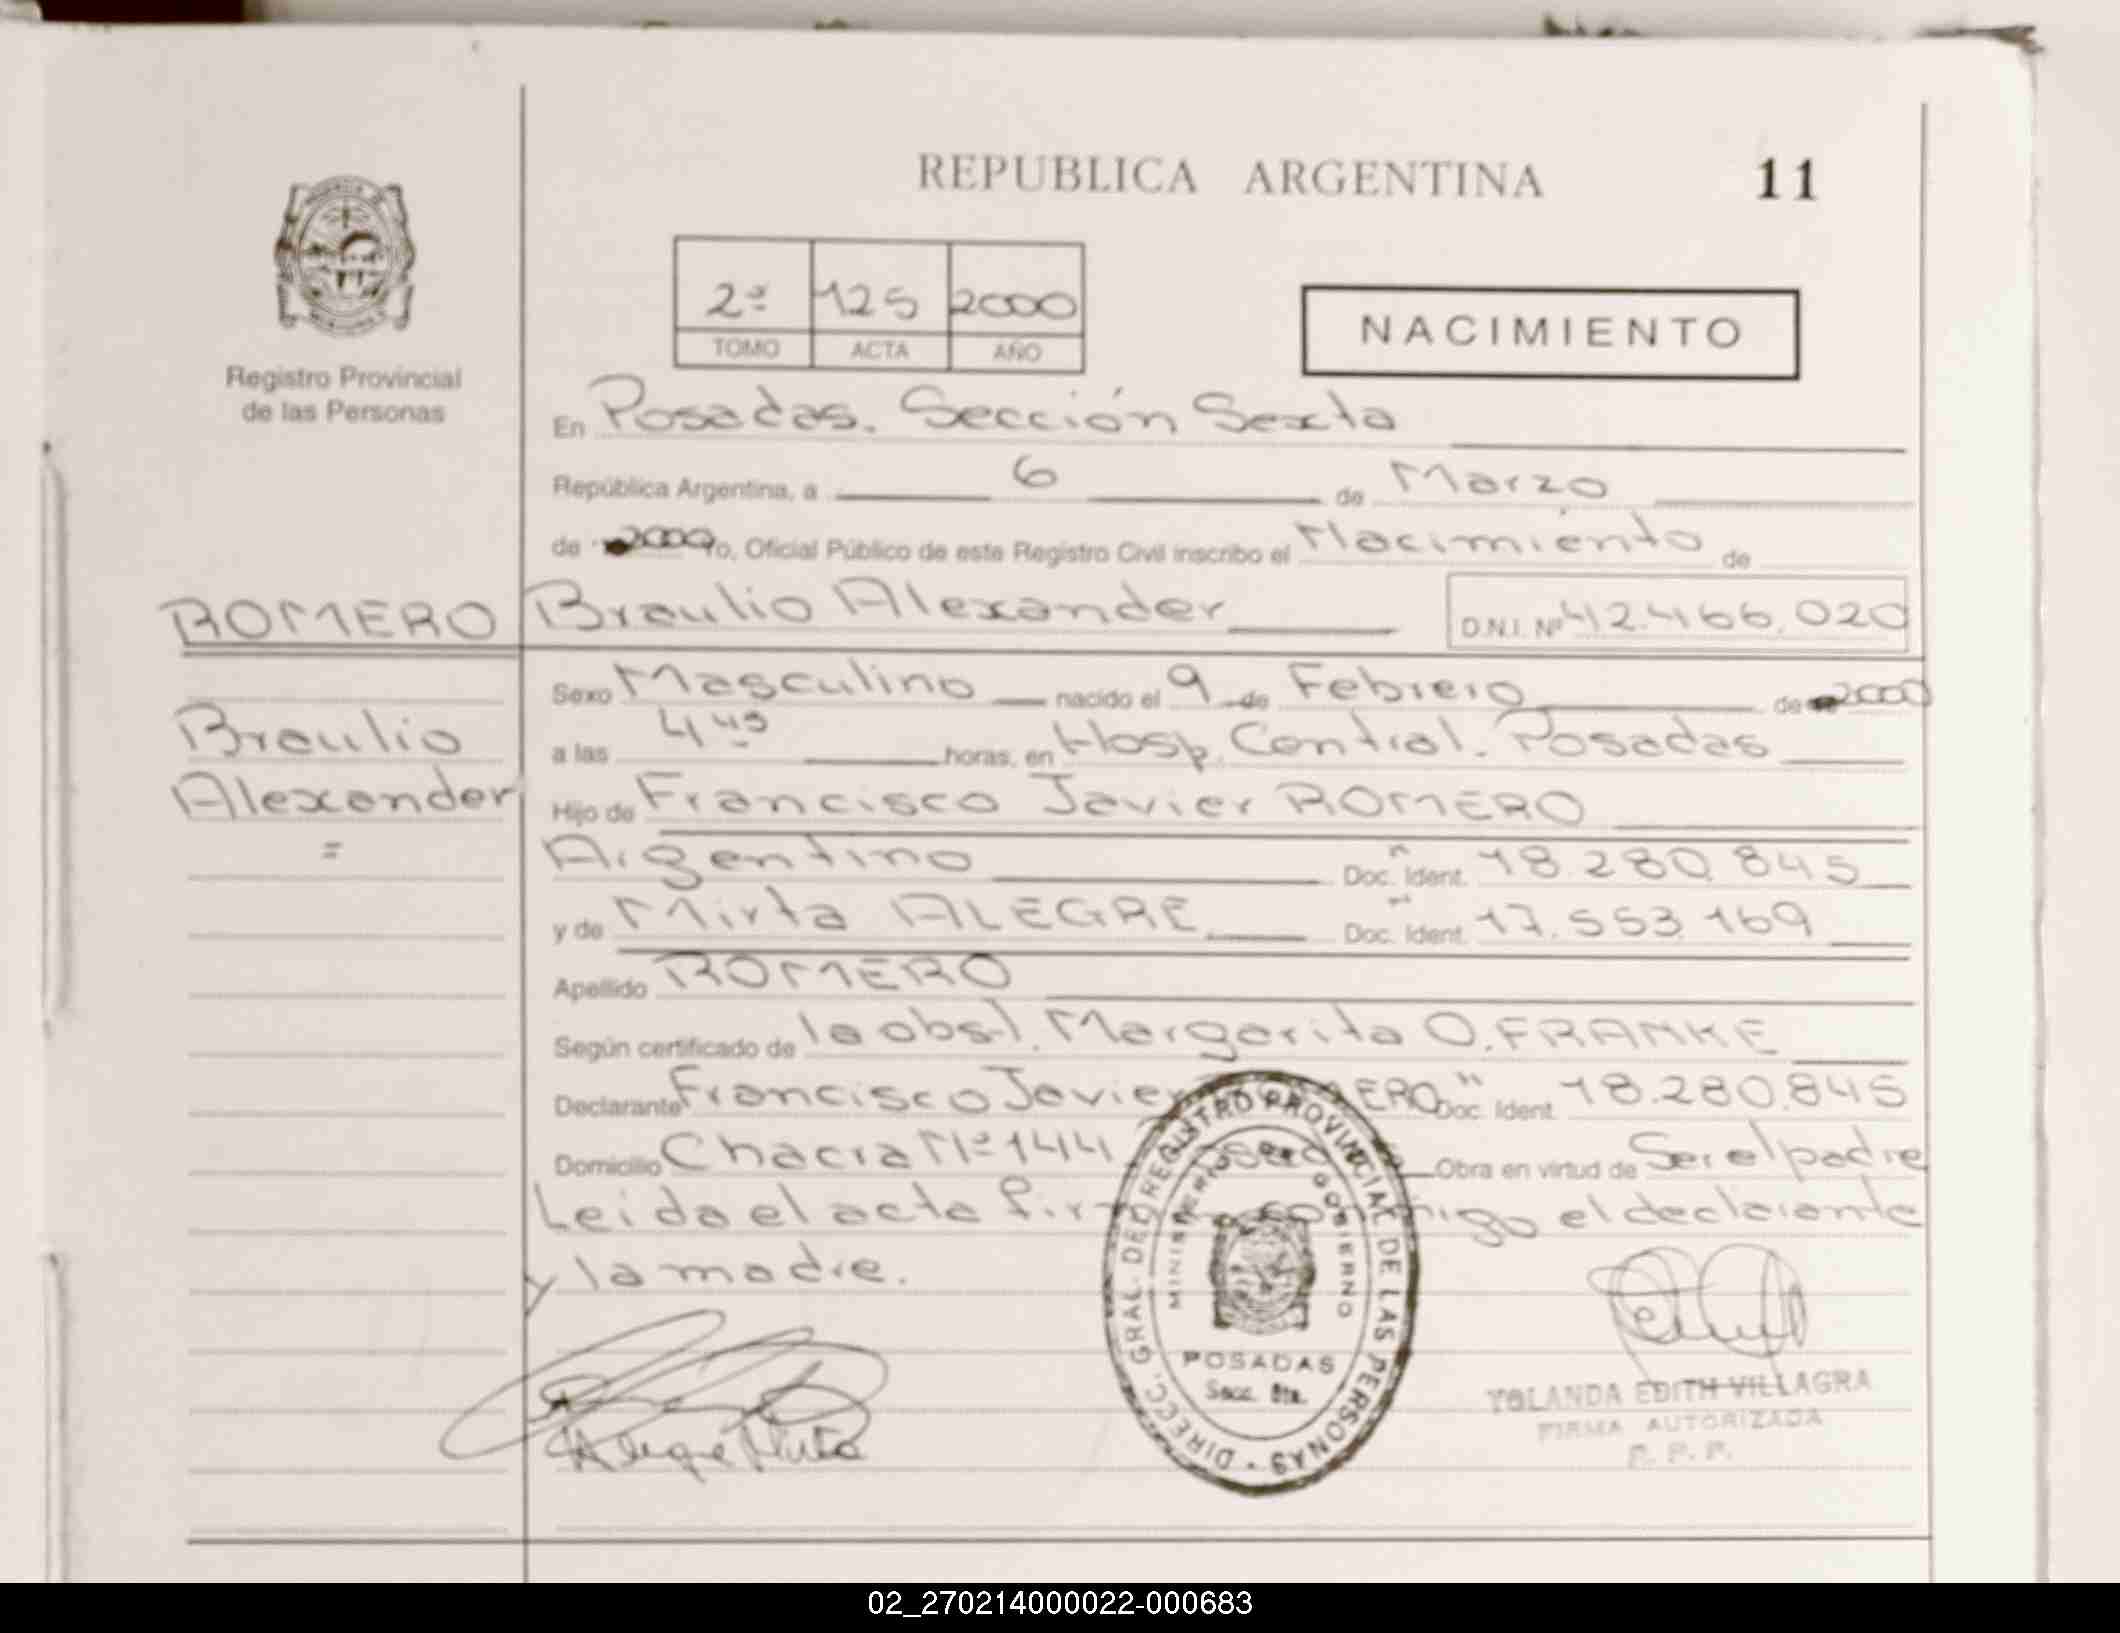 REPUBLICA ARGENTINA 11
2ª 125 2000
TOMO ACTA AÑO
NACIMIENTO
Registro Provincial
de las Personas
En Posadas. Sección Sexta
República Argentina, a 6 de Marzo
de 2000 Yo, Oficial Público de este Registro Civil inscribo el Nacimiento de
ROMERO Braulio Alexander D.N.I. Nº 42.466.020
Braulio
Alexander
=
Sexo Masculino nacido el 9 de Febrero de 2000
a las 4 horas, en Hosp. Central. Posadas
Hijo de Francisco Javier ROMERO
Argentino Doc. Ident. 18.280.845
y de Mirta ALEGRE Doc. Ident. 17.553.169
Apellido ROMERO
Según certificado de la obst. Margarita O. FRANKE
Declarante Francisco Javier ROMERO Doc. Ident. 18.280.845
Domicilio Chacra Nº 144 Posadas Obra en virtud de Ser el padre
Leida el acta firman conmigo el declarante
y la madre.
Alegre Mirta
DIRECC. GRAL. DEL REGISTRO PROVINCIAL DE LAS PERSONAS
MINISTERIO DE GOBIERNO
POSADAS
Secc. 6ta.
YOLANDA EDITH VILLAGRA
FIRMA AUTORIZADA
R. P. P.
02_270214000022-000683